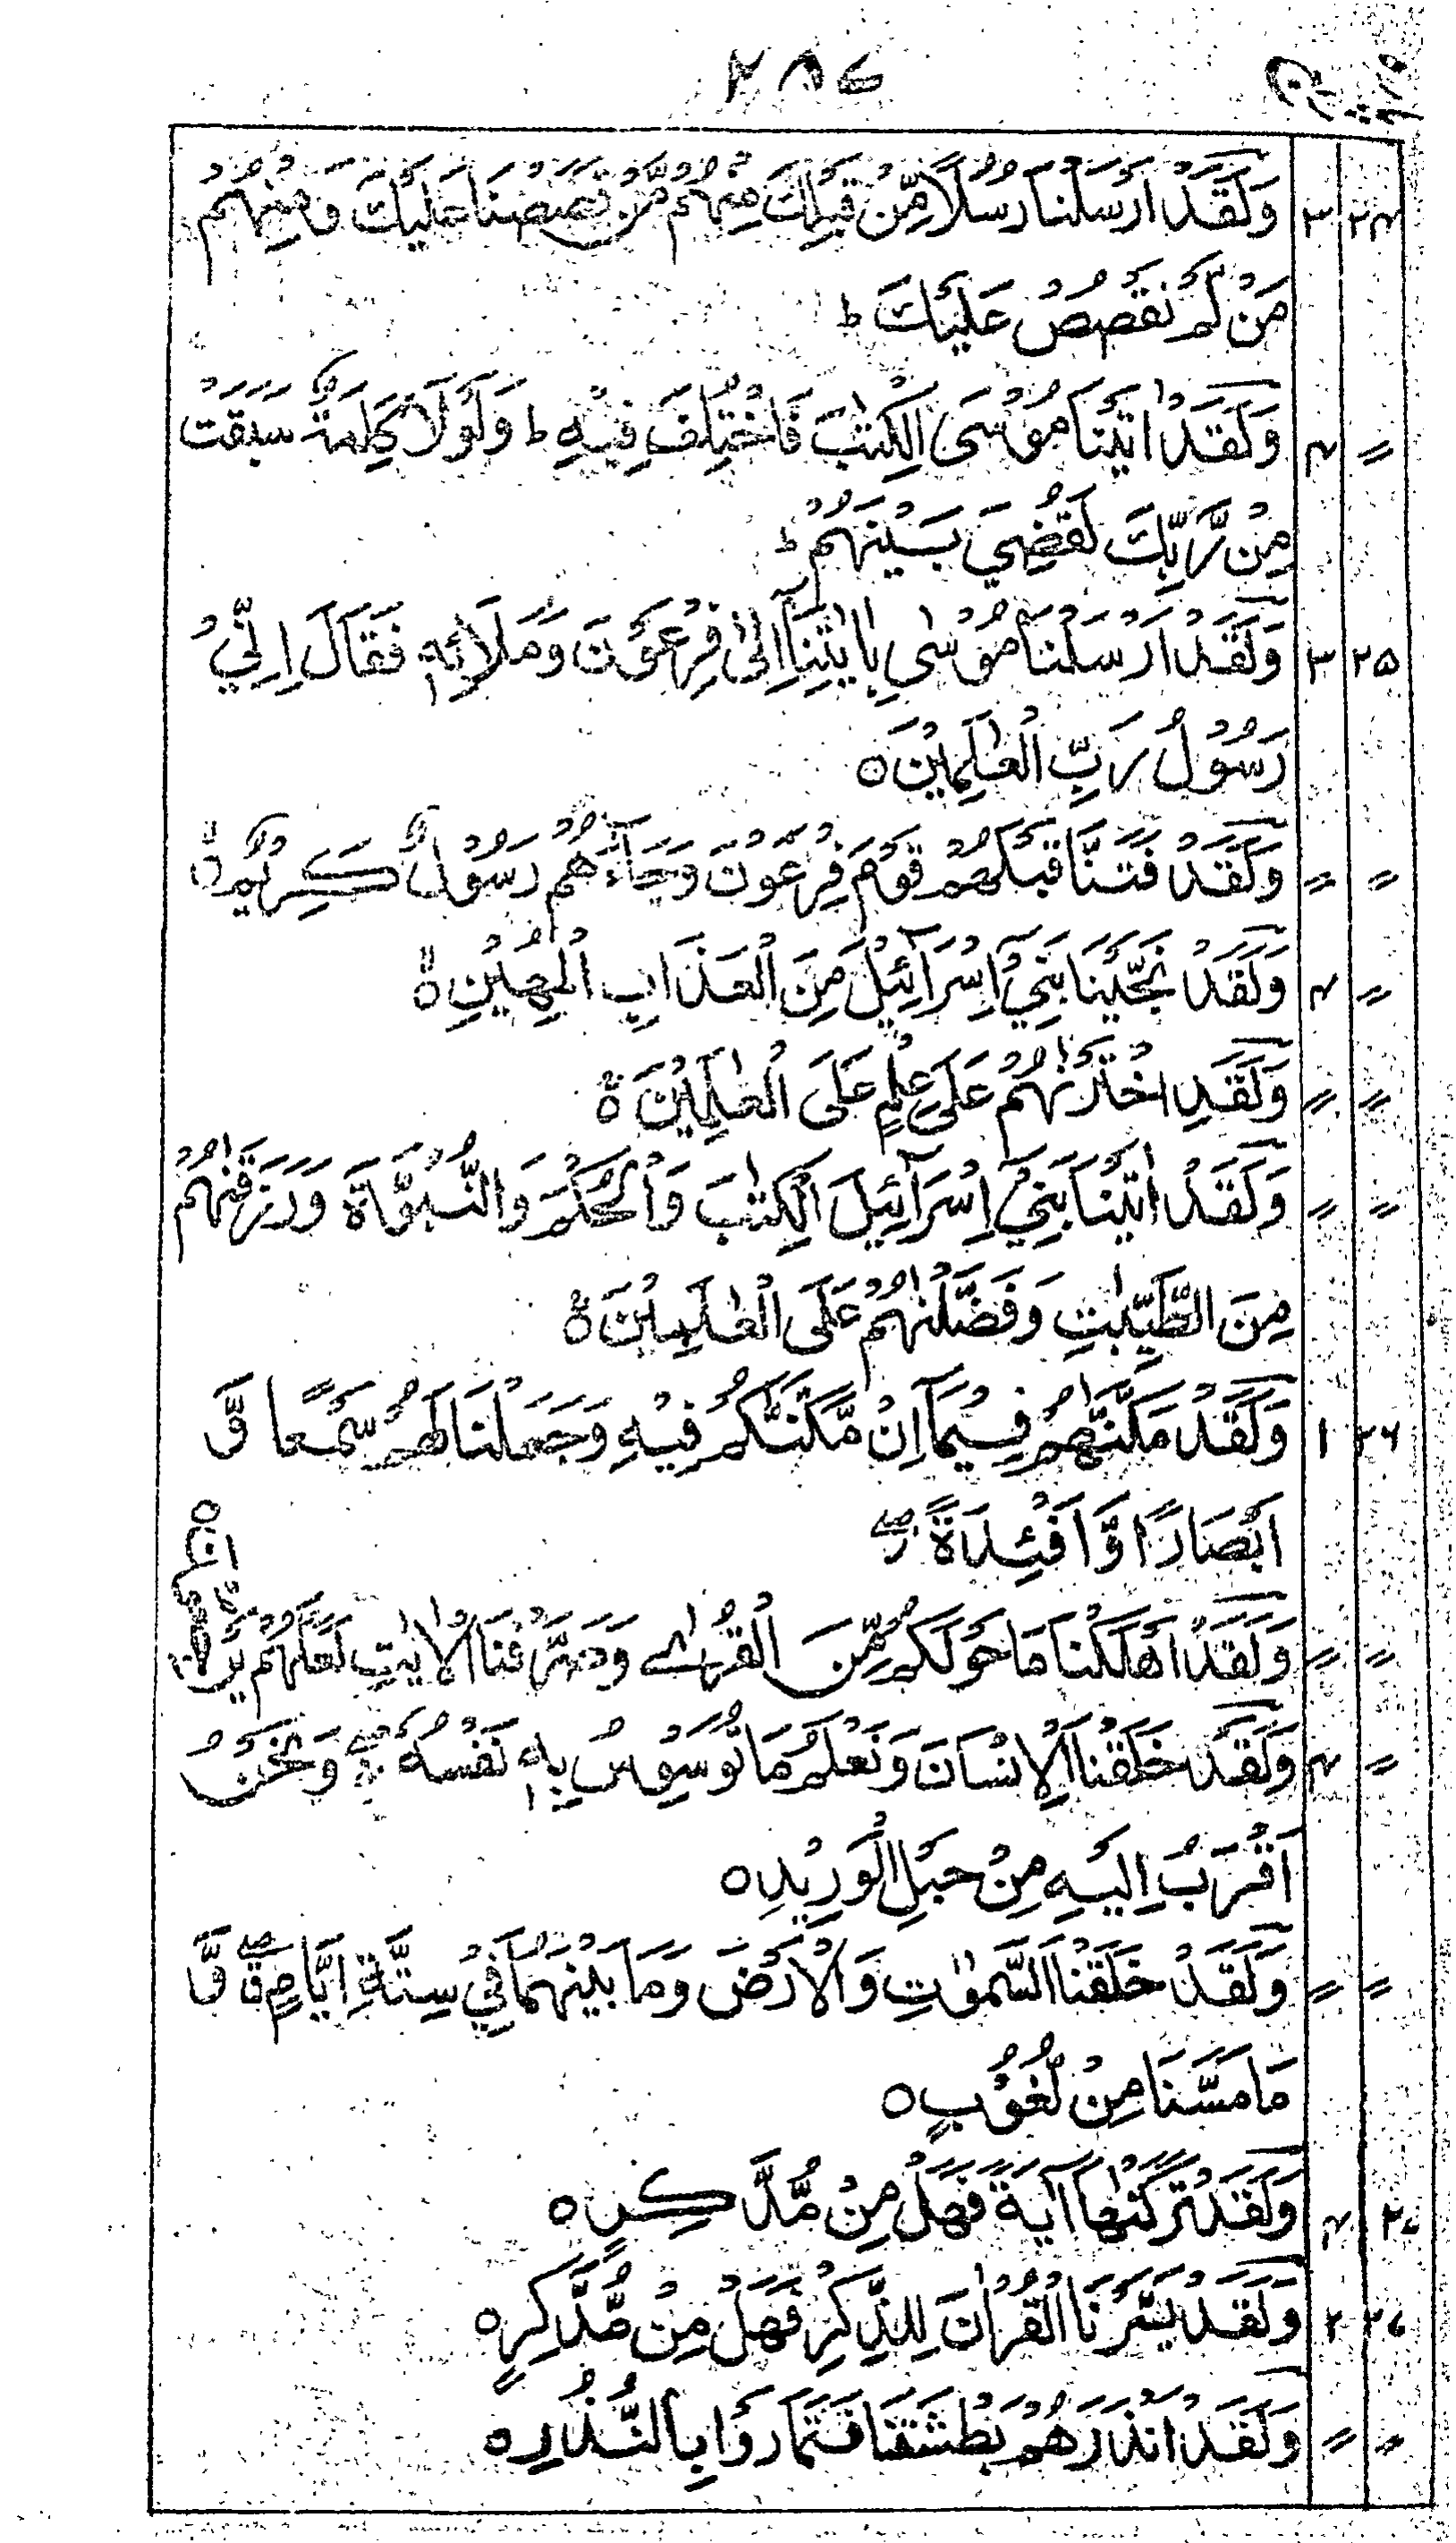 ۲۸۷
۲۴ ۳ وَلَقَدْ اَرْسَلْنَا رُسُلًا مِّنْ قَبْلِكَ مِنْهُمْ مَّنْ قَصَصْنَا عَلَيْكَ وَمِنْهُمْ
مَّنْ لَّمْ نَقْصُصْ عَلَيْكَ ط
〃 ۴ وَلَقَدْ اٰتَيْنَا مُوْسَى الْكِتٰبَ فَاخْتُلِفَ فِيْهِ ط وَلَوْلَا كَلِمَةٌ سَبَقَتْ
مِنْ رَّبِّكَ لَقُضِيَ بَيْنَهُمْ ط
۲۵ ۳ وَلَقَدْ اَرْسَلْنَا مُوْسٰى بِاٰيٰتِنَآ اِلٰى فِرْعَوْنَ وَمَلَا۟ئِهٖ فَقَالَ اِنِّيْ
رَسُوْلُ رَبِّ الْعٰلَمِيْنَ ○
〃 〃 وَلَقَدْ فَتَنَّا قَبْلَهُمْ قَوْمَ فِرْعَوْنَ وَجَآءَهُمْ رَسُوْلٌ كَرِيْمٌ ○
〃 ۴ وَلَقَدْ نَجَّيْنَا بَنِيْٓ اِسْرَآئِيْلَ مِنَ الْعَذَابِ الْمُهِيْنِ ○
〃 〃 وَلَقَدِ اخْتَرْنٰهُمْ عَلٰى عِلْمٍ عَلَى الْعٰلَمِيْنَ ○
〃 〃 وَلَقَدْ اٰتَيْنَا بَنِيْٓ اِسْرَآئِيْلَ الْكِتٰبَ وَالْحُكْمَ وَالنُّبُوَّةَ وَرَزَقْنٰهُمْ
مِنَ الطَّيِّبٰتِ وَفَضَّلْنٰهُمْ عَلَى الْعٰلَمِيْنَ ○
۲۶ ۱ وَلَقَدْ مَكَّنّٰهُمْ فِيْمَآ اِنْ مَّكَّنّٰكُمْ فِيْهِ وَجَعَلْنَا لَهُمْ سَمْعًا وَّ
اَبْصَارًا وَّاَفْئِدَةً ۖ
〃 〃 وَلَقَدْ اَهْلَكْنَا مَا حَوْلَكُمْ مِّنَ الْقُرٰى وَصَرَّفْنَا الْاٰيٰتِ لَعَلَّهُمْ يَرْجِعُوْنَ ○
〃 ۴ وَلَقَدْ خَلَقْنَا الْاِنْسَانَ وَنَعْلَمُ مَا تُوَسْوِسُ بِهٖ نَفْسُهٗ ۖ وَنَحْنُ
اَقْرَبُ اِلَيْهِ مِنْ حَبْلِ الْوَرِيْدِ ○
〃 〃 وَلَقَدْ خَلَقْنَا السَّمٰوٰتِ وَالْاَرْضَ وَمَا بَيْنَهُمَا فِيْ سِتَّةِ اَيَّامٍ ۖ وَّ
مَا مَسَّنَا مِنْ لُّغُوْبٍ ○
۲۷ وَلَقَدْ تَّرَكْنٰهَآ اٰيَةً فَهَلْ مِنْ مُّدَّكِرٍ ○
۲۷ ۲ وَلَقَدْ يَسَّرْنَا الْقُرْاٰنَ لِلذِّكْرِ فَهَلْ مِنْ مُّدَّكِرٍ ○
〃 〃 وَلَقَدْ اَنْذَرَهُمْ بَطْشَتَنَا فَتَمَارَوْا بِالنُّذُرِ ○